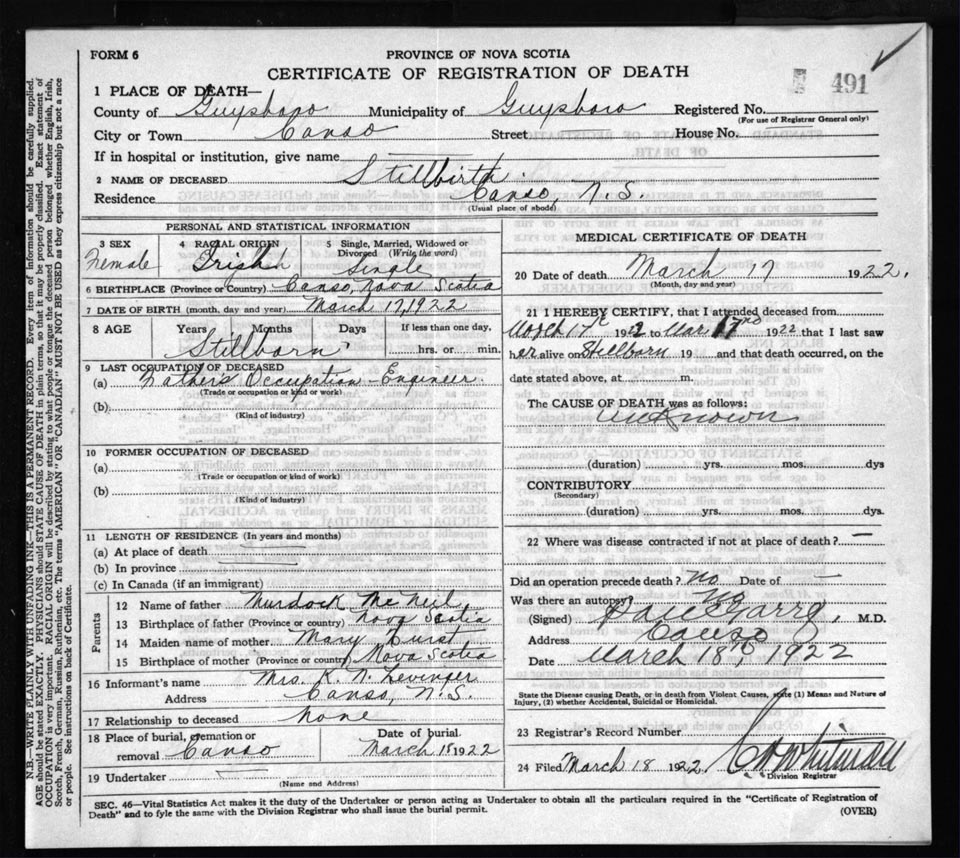 FORM 6
PROVINCE OF NOVA SCOTIA
CERTIFICATE OF REGISTRATION OF DEATH
491
1 PLACE OF DEATH—
County of Guysboro Municipality of Guysboro Registered No.
(For use of Registrar General only)
City or Town Canso Street House No.
If in hospital or institution, give name
2 NAME OF DECEASED Stillbirth
Residence Canso, N.S.
(Usual place of abode)
PERSONAL AND STATISTICAL INFORMATION
3 SEX Female
4 RACIAL ORIGIN Irish
5 Single, Married, Widowed or Divorced (Write the word) Single
6 BIRTHPLACE (Province or Country) Canso, Nova Scotia
7 DATE OF BIRTH (month, day and year) March 17, 1922
8 AGE Years Months Days If less than one day,
Stillborn hrs. or min.
9 LAST OCCUPATION OF DECEASED
(a) Father's Occupation - Engineer
(Trade or occupation or kind of work)
(b)
(Kind of industry)
10 FORMER OCCUPATION OF DECEASED
(a)
(Trade or occupation or kind of work)
(b)
(Kind of industry)
11 LENGTH OF RESIDENCE (In years and months)
(a) At place of death
(b) In province
(c) In Canada (if an immigrant)
Parents
12 Name of father Murdock McNeil
13 Birthplace of father (Province or country) Nova Scotia
14 Maiden name of mother Mary
15 Birthplace of mother (Province or country) Nova Scotia
16 Informant's name Mrs. K. N. Levinger
Address Canso, N.S.
17 Relationship to deceased None
18 Place of burial, cremation or removal Canso
Date of burial March 18 1922
19 Undertaker
(Name and Address)
MEDICAL CERTIFICATE OF DEATH
20 Date of death March 17 1922.
(Month, day and year)
21 I HEREBY CERTIFY, that I attended deceased from
March 17th 1922 to Mar 17 1922 that I last saw
her alive on Stillborn 19 and that death occurred, on the
date stated above, at m.
The CAUSE OF DEATH was as follows:
Unknown
(duration) yrs. mos. dys
CONTRIBUTORY
(Secondary)
(duration) yrs. mos. dys.
22 Where was disease contracted if not at place of death? —
Did an operation precede death? No Date of —
Was there an autopsy? No
(Signed) M.D.
Address Canso
Date March 18th, 1922
State the Disease causing Death, or in death from Violent Causes, state (1) Means and Nature of
Injury, (2) whether Accidental, Suicidal or Homicidal.
23 Registrar's Record Number
24 Filed March 18 1922. Whitman
Division Registrar
SEC. 46—Vital Statistics Act makes it the duty of the Undertaker or person acting as Undertaker to obtain all the particulars required in the "Certificate of Registration of
Death" and to fyle the same with the Division Registrar who shall issue the burial permit.
(OVER)
N.B.—WRITE PLAINLY WITH UNFADING INK—THIS IS A PERMANENT RECORD. Every item of information should be carefully supplied.
AGE should be stated EXACTLY. PHYSICIANS should STATE CAUSE OF DEATH in plain terms, so that it may be properly classified. Exact statement of
OCCUPATION is very important. RACIAL ORIGIN will be described by stating to what people or tongue the deceased person belonged whether English, Irish,
Scotch, French, German, Russian, Ruthenian, etc. The terms "AMERICAN" OR "CANADIAN" MUST NOT BE USED as they express citizenship but not a race
or people. See instructions on back of Certificate.